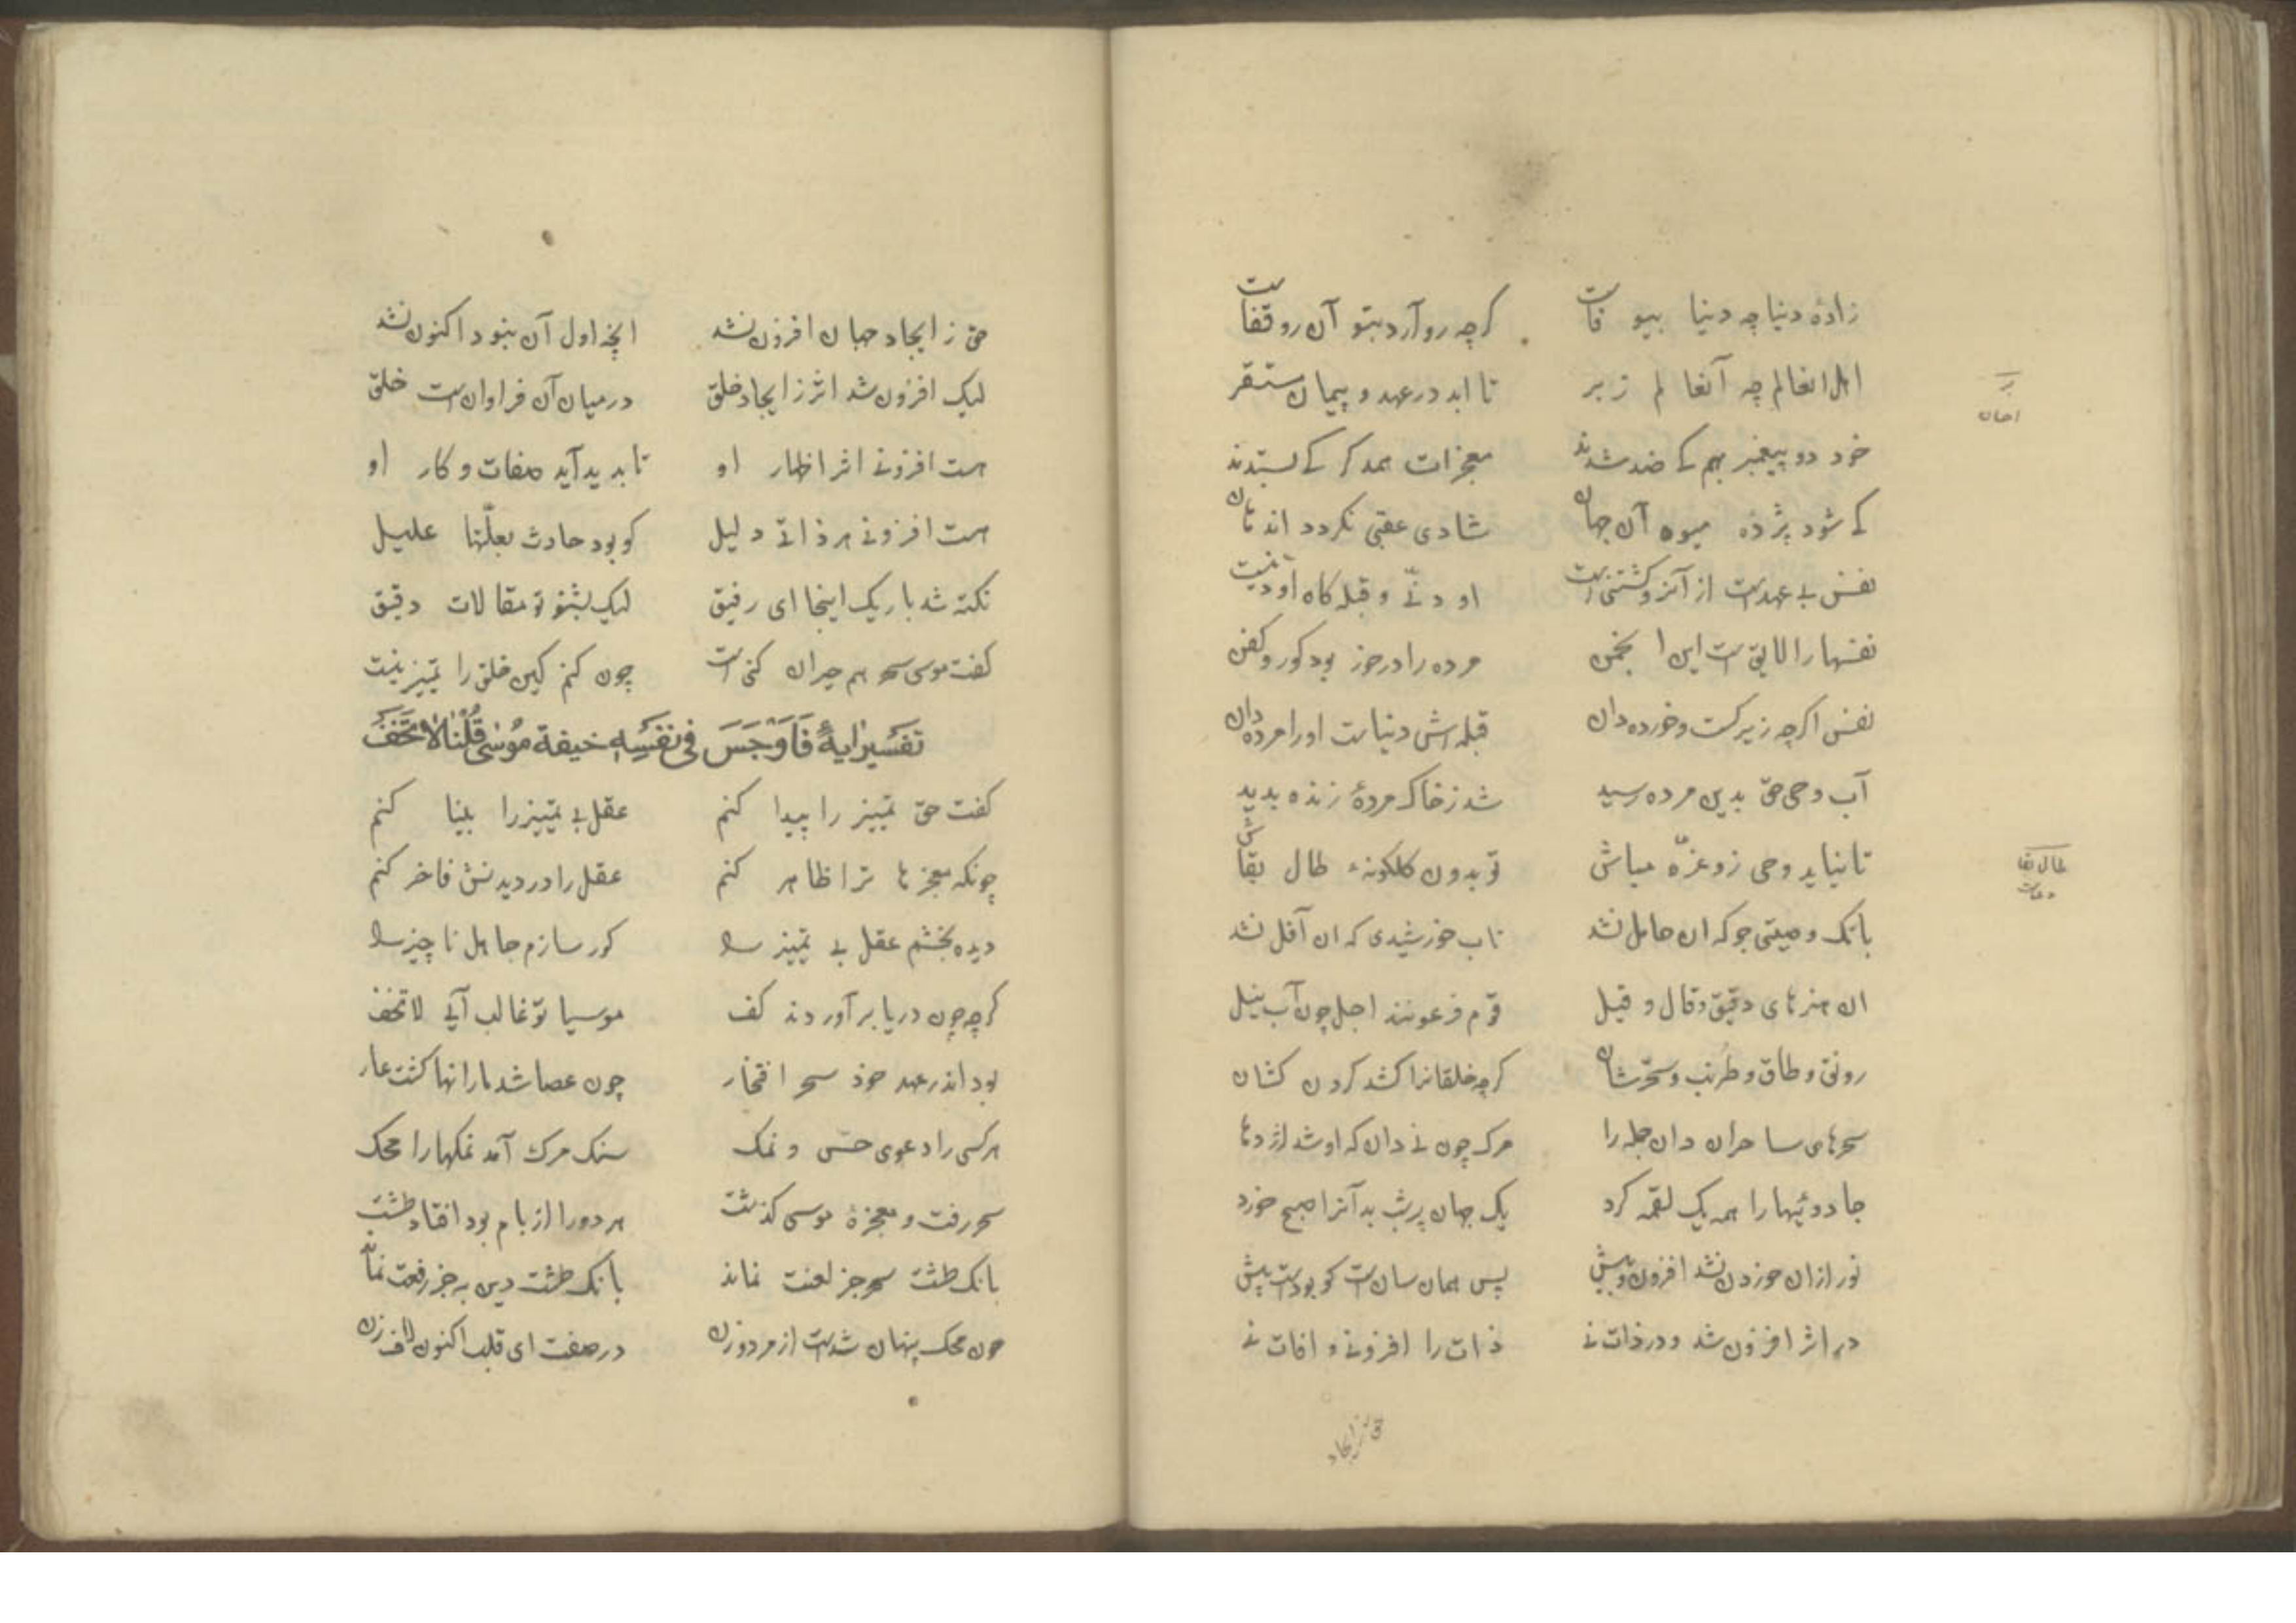 زادهٔ دنیا چه دنیا بیو فاست    کرچه رو آرد بتو آن رو قفاست
اهل انعالم چه آنعا لم ز بر    تا ابد در عهد و پیمان مستقر
بر
احسان
خود دو پیغمبر بهم کے ضد شدند    معجزات همدکر کے بستدند
کے شود پژ ذه میوه آن جهان    شادی عقبی نکردد اندهان
نفس بے عهدست از آنرو کشتنی است    او دنّے و قبله کاه او دنیست
نفسهارا لایق است این ا نجمن    مرده را درخور بود کور و کفن
نفس اکرچه زیرکست و خورده دان    قبله اش دنیاست او را مرده دان
آب وحی حق بدین مرده رسید    شد ز خاک مردهٔ زنده بدید
تا نیاید وحی زو غرّه مباش    تو بدون کلکونهٔ طال بقاش
طال بقا
بانک و صیتی جو که ان حامل نشد    تاب خورشیدی که ان آفل نشد
ان هنرهای دقیق و قال و قیل    قوم فرعونند اجل چون آب نیل
رونق و طاق و طرنب و سحرشان    کرچه خلقانرا کشد کردن کشان
سحرهای ساحران دان جمله را    مرک چون نے دان که او شد اژدها
جادوئیهارا همه یک لقمه کرد    یک جهان پرشب بد آنرا صبح خورد
نور ازان خوردن نشد افزون و بیش    پس همان سانست کو بودست پیش
در اثر افزون شد و در ذات نے    ذات را افزونے و افات نے
حق ز ایجاد
حق ز ایجاد جهان افزون نشد    انچه اول آن نبود اکنون نشد
لیک افزون شد اثر ز ایجاد خلق    درمیان آن فراوان است خلق
هست افزونے اثر اظهار او    تا بدید آید صفات و کار او
هست افزونے هر ذاتے دلیل    کو بود حادث بعلّتها علیل
نکته شد باریک اینجا ای رفیق    لیک بشنو تو مقالات دقیق
کفت موسی سحر هم حیران کنی است    چون کنم کین خلق را تمییز نیست
تفسیر ایهٔ فَاَوْجَسَ فی نفسِهِ خیفة مُوسٰی قُلْنَا لَا تَخَفْ
کفت حق تمییز را پیدا کنم    عقل بے تمییز را بینا کنم
چونکه معجزها ترا ظاهر کنم    عقل را در دیدنش فاخر کنم
دیده بخشم عقل بے تمییز را    کور سازم جاهل ناچیز را
کرچه چون دریا برآوردند کف    موسیا تو غالب آیے لا تخف
بود اندر عهد خود سحر افتخار    چون عصا شد مار انها کشت عار
هر کسی را دعوی حسن و نمک    سنک مرک آمد نمکهارا محک
سحر رفت و معجزهٔ موسی کذشت    هر دو را از بام بود افتاد طشت
بانک طشت سحر جز لعنت نماند    بانک طشت دین به جز رفعت نماند
چون محک پنهان شدست از مرد و زن    در صف ای قلب اکنون لاف زن